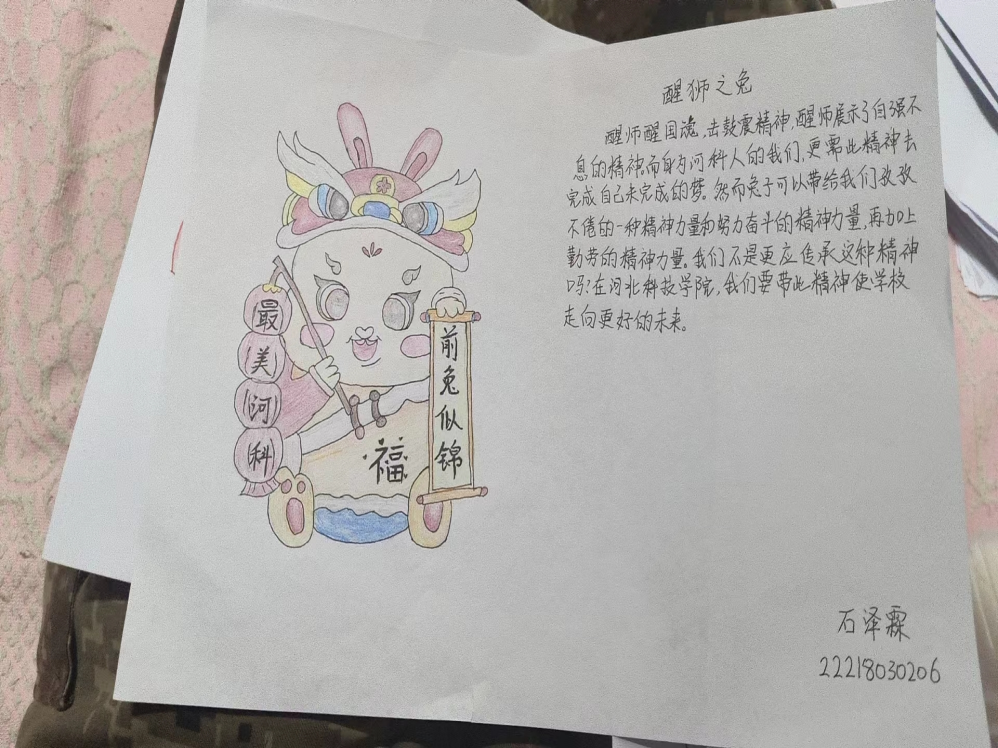 醒狮之兔
醒师醒国魂,击鼓震精神,醒师展示了自强不
息的精神,而身为河科人的我们,更需此精神去
完成自己未完成的梦。然而兔子可以带给我们孜孜
不倦的一种精神力量和努力奋斗的精神力量,再加上
勤劳的精神力量。我们不是更应传承这种精神
吗?在河北科技学院,我们要带此精神使学校
走向更好的未来。
最美河科
前兔似锦
福
石泽霖
22218030206